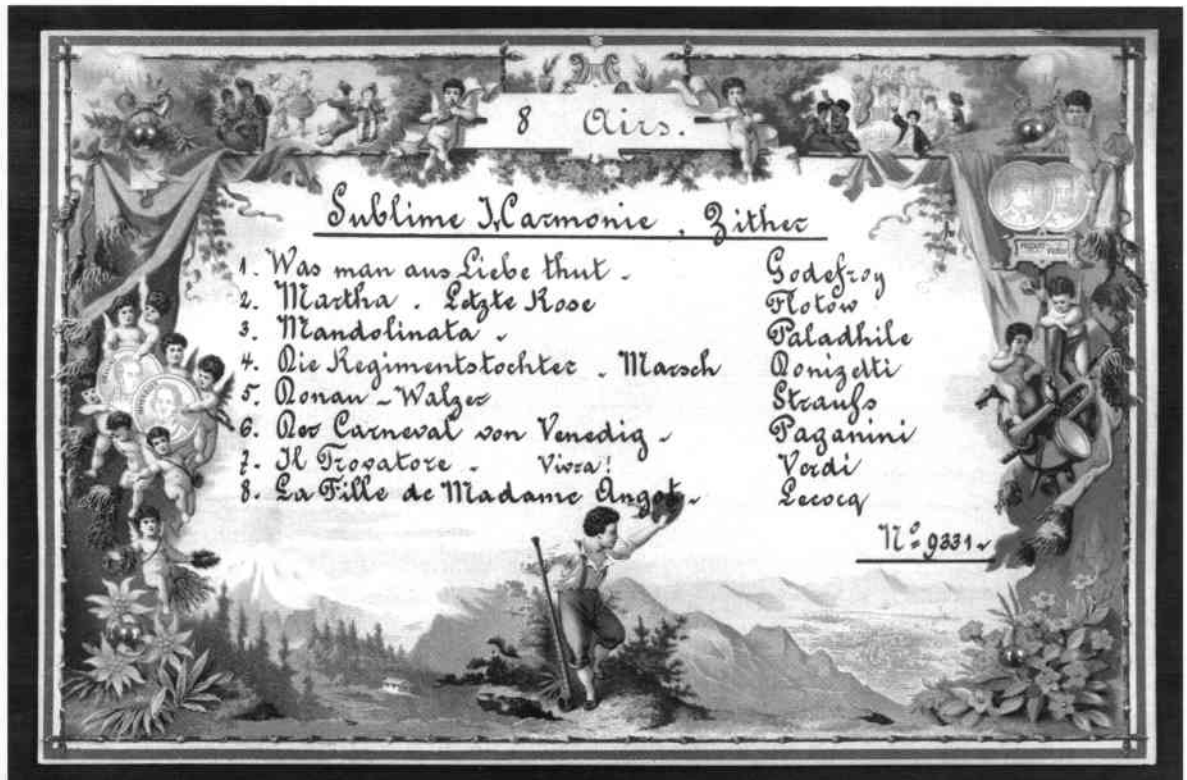 8 Airs.
Sublime Harmonie, Zither
1. Was man aus Liebe thut. Godefroy
2. Martha. Letzte Rose Flotow
3. Mandolinata. Paladhile
4. Die Regimentstochter. Marsch Donizetti
5. Donau-Walzer Strauss
6. Der Carneval von Venedig. Paganini
7. Il Trovatore. Vivra! Verdi
8. La Fille de Madame Angot. Lecocq
No 9331.